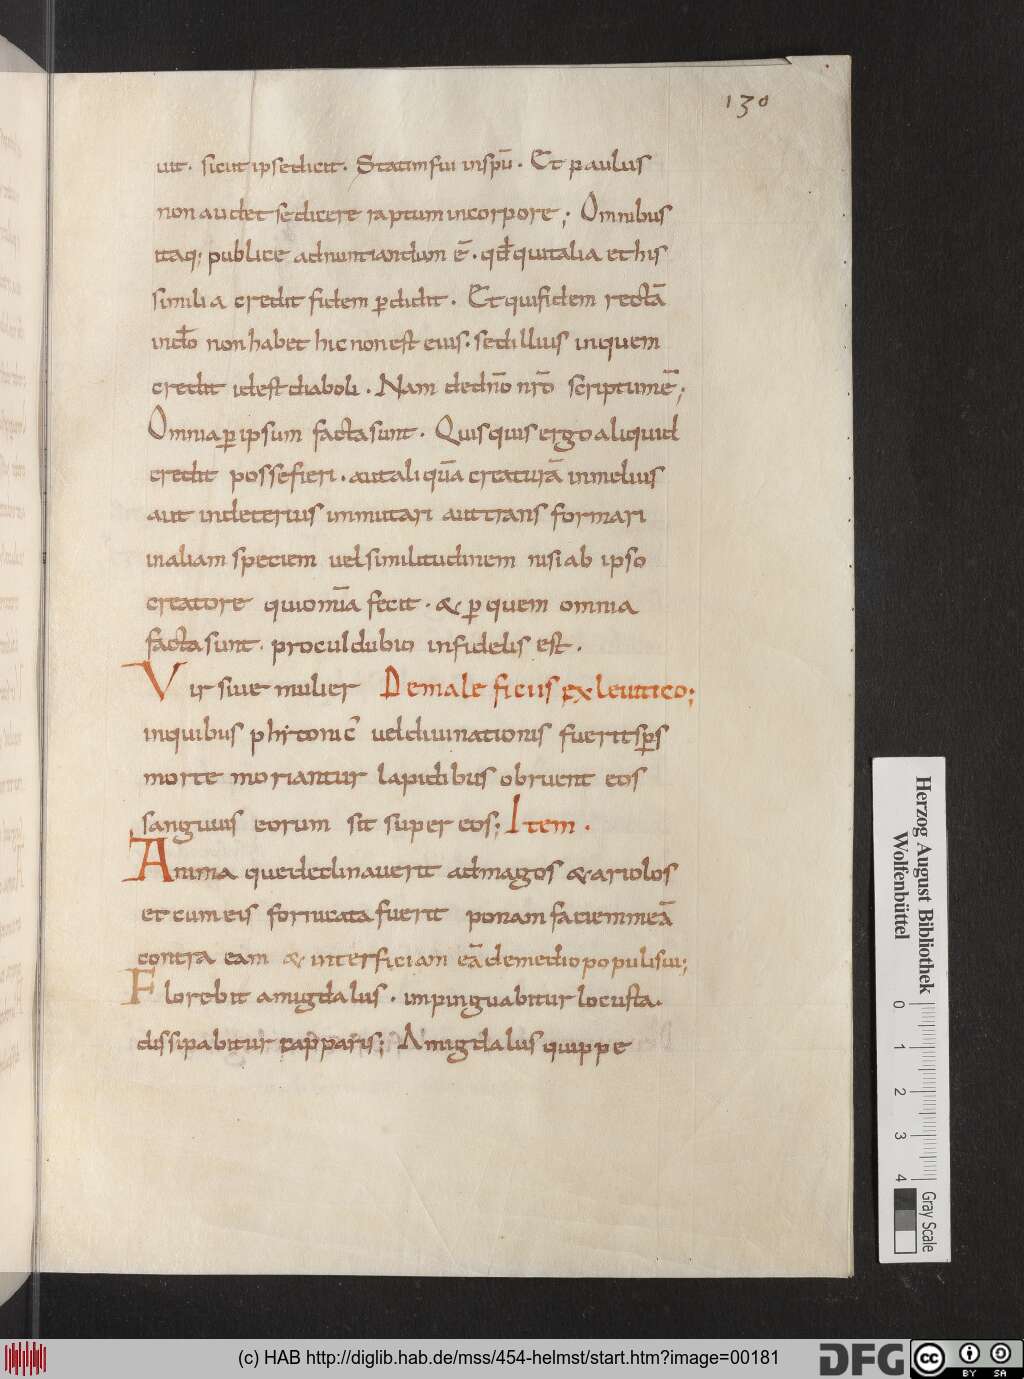 130
uit. sicut ipse dicit. Statim fui in sp̄u. Et paulus
non audet se dicere raptum in corpore; Omnibus
itaq; publice adnuntiandum ē. qđ qui talia et his
similia credit fidem ꝑdidit. Et qui fidem rectā
in dō non habet hic non est eius. sed illius in quem
credit id est diaboli. Nam de dn̄o nr̄o scriptum ē;
Omnia ꝑ ipsum facta sunt. Quisquis ergo aliquid
credit posse fieri. aut aliquā creaturā in melius
aut in deterius inmutari aut transformari
in aliam speciem uel similitudinem nisi ab ipso
creatore qui om̄ia fecit. & ꝑ quem omnia
facta sunt. procul dubio infidelis est.
Vir siue mulier De maleficus ex leuitico;
in quibus phitonic̄ uel diuinationis fuerit sps
morte moriantur lapidibus obruent eos
sanguis eorum sit super eos; Item.
Anima que declinauerit ad magos & ariolos
et cum eis fornicata fuerit ponam faciem meā
contra eam & interficiam eā de medio populi sui;
Florebit amigdalus. inpinguabitur locusta.
dissipabitur capparis; Amigdalus quippe
Herzog August Bibliothek
Wolfenbüttel
0 1 2 3 4
Gray Scale
(c) HAB http://diglib.hab.de/mss/454-helmst/start.htm?image=00181
DFG
cc BY SA